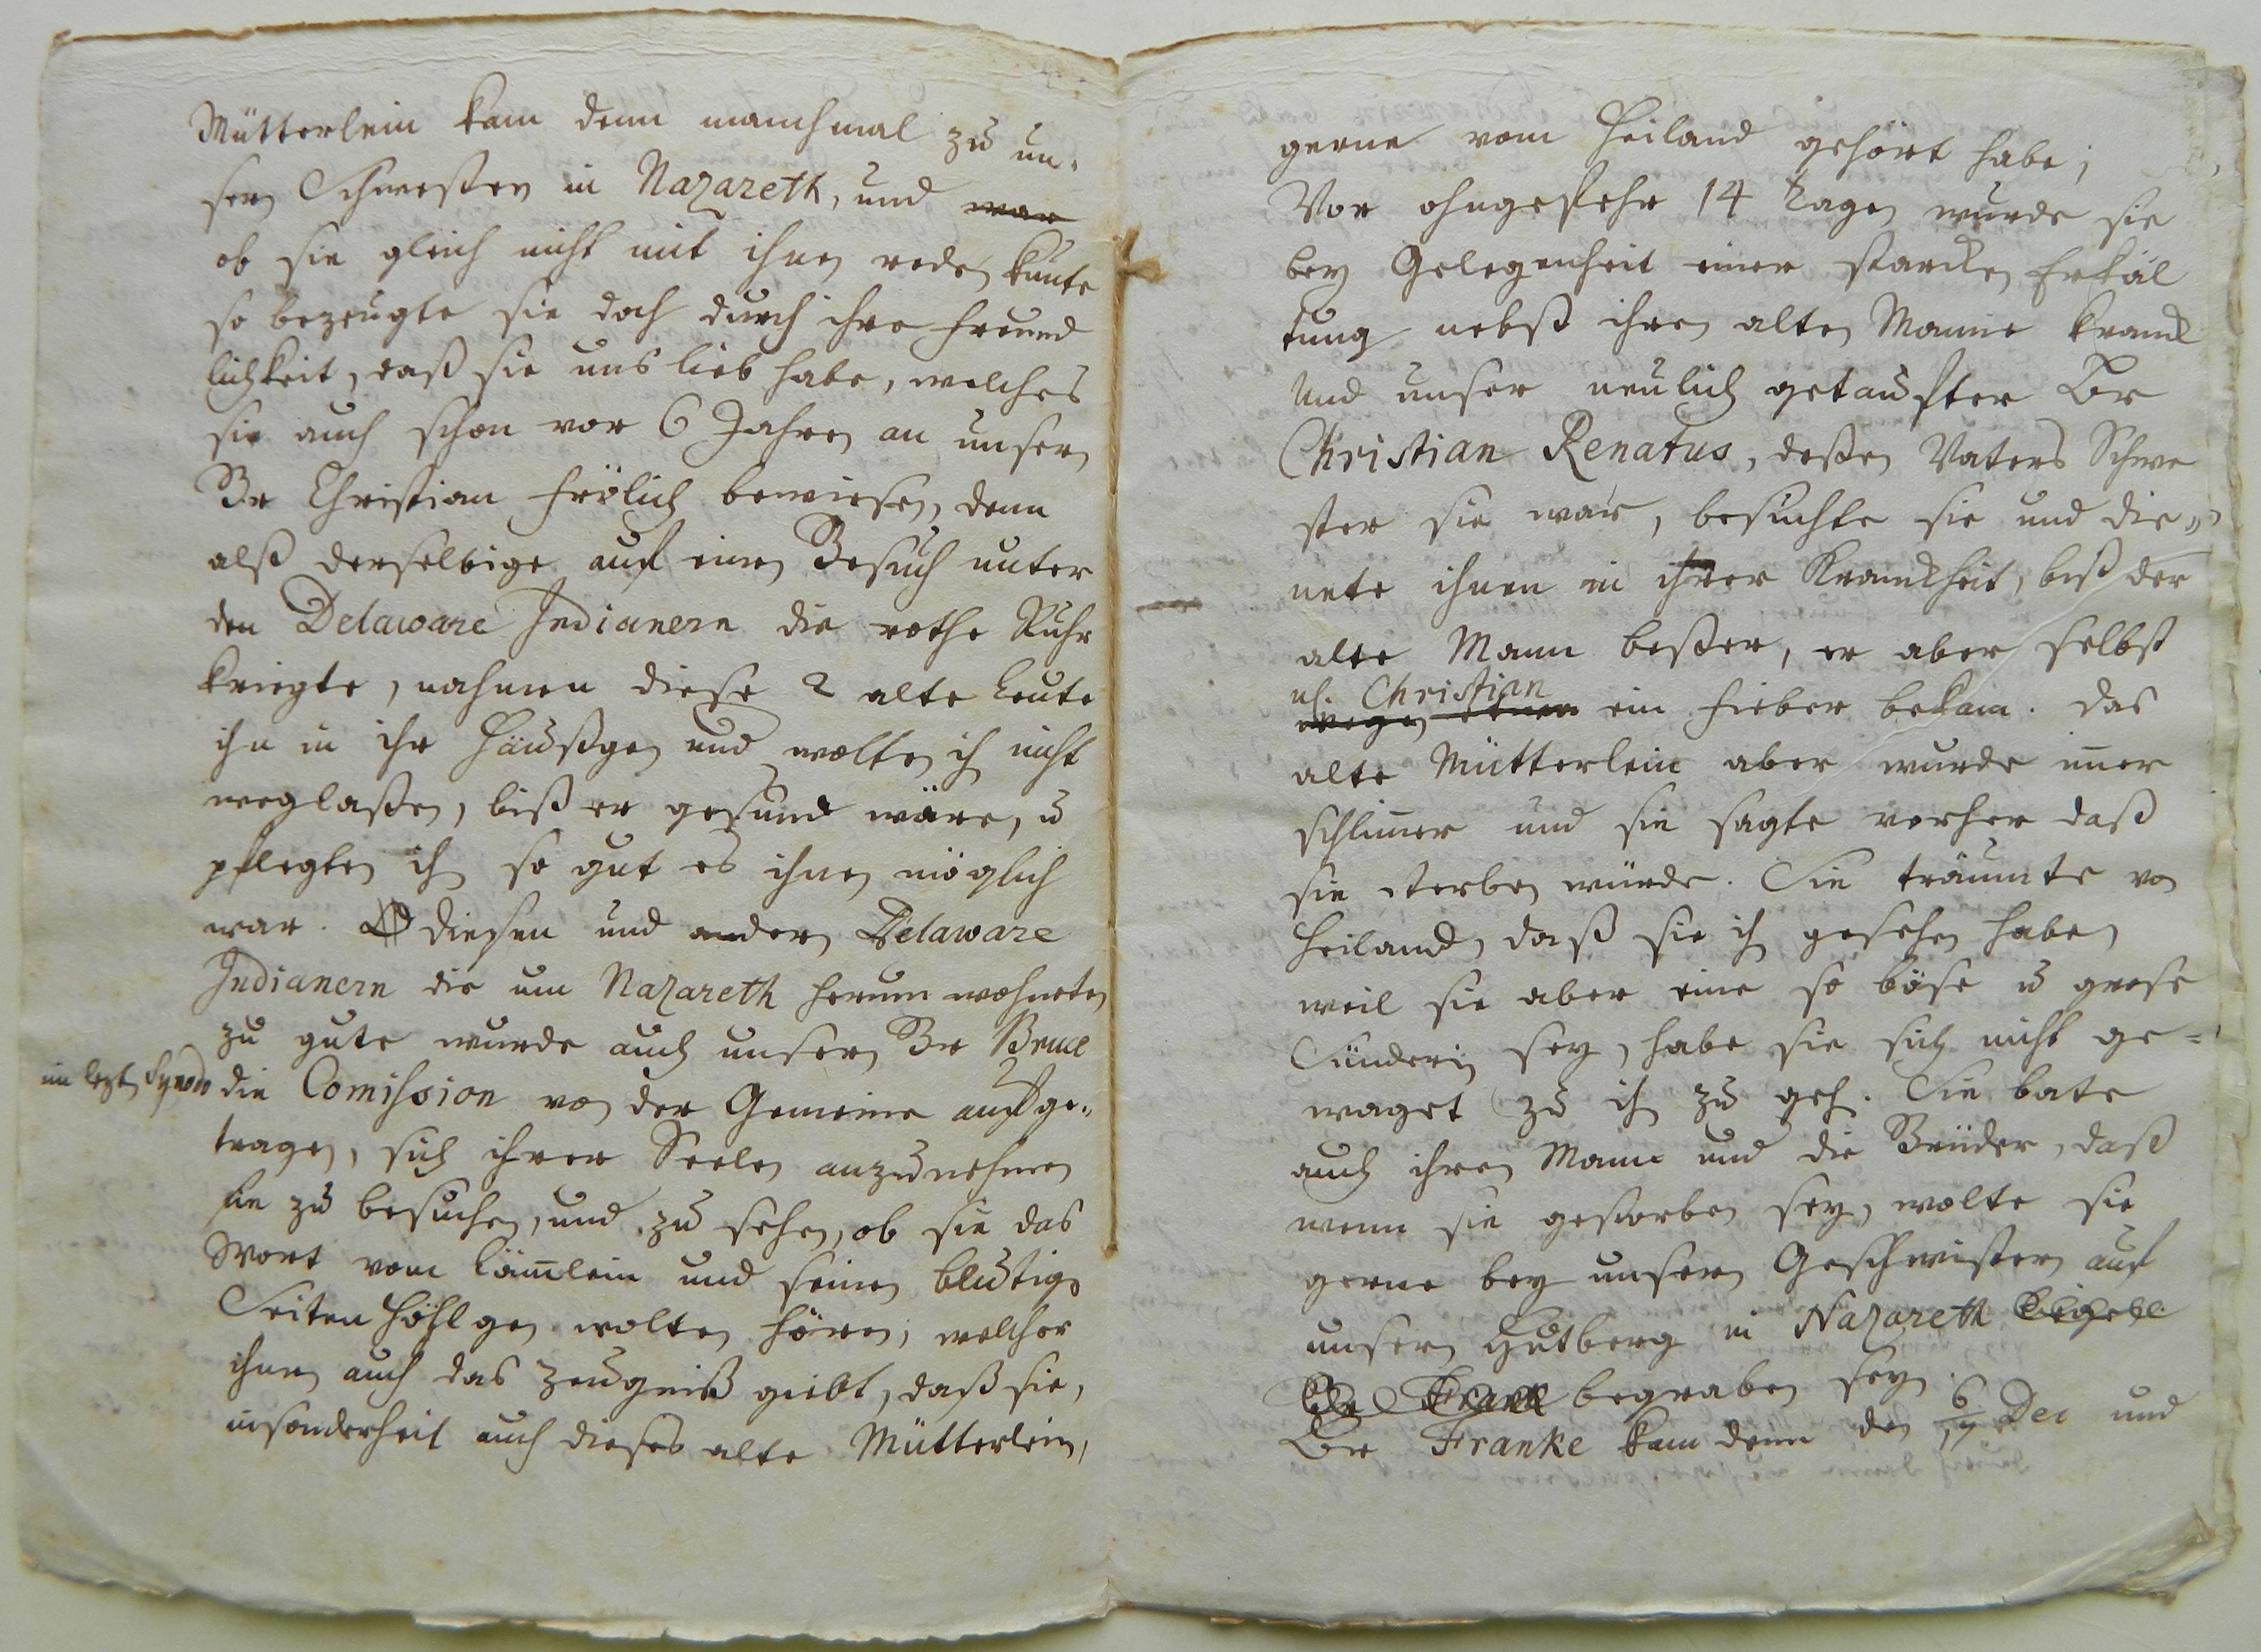 Mütterlein kam denn manchmal zu un-
sern Schwestern in Nazareth, und war
ob sie gleich nicht mit ihnen reden kunte
so bezeugte sie doch durch ihre Freund
lichkeit, daß sie uns lieb habe, welches
sie auch schon vor 6 Jahren an unsern
Br Christian Frölich bewiesen, denn
alß derselbige auf einen Besuch unter
den Delaware Indianern die rothe Ruhr
kriegte, nahmen diese 2 alte Leute
ihn in ihr Häußgen und wolten ihn nicht
weglaßen, biß er gesund wäre, u
pflegten ihn so gut es ihnen möglich
war. diesen und andern Delaware
Indianern die um Nazareth herum wohneten
zu gute wurde auch unserm Br Bruce
im lezten Synodo die Comission von der Gemeine aufge-
tragen, sich ihrer Seelen anzunehmen
sie zu besuchen, und zu sehen, ob sie das
Wort vom Lämlein und seinen blutigen
Seiten Höhlgen wolten hören, welcher
ihnen auch das Zeugniß giebt, daß sie,
insonderheit auch dieses alte Mütterlein,
gerne vom Heiland gehört habe;
Vor ohngefehr 14 Tagen wurde sie
bey Gelegenheit einer starcken Erkäl
tung nebst ihren alten Manne kranck
Und unser neulich getaufter Br
Christian Renatus, deßen Vaters Schwe
ster sie war, besuchte sie und die-
nete ihnen in ihrer Kranckheit, biß der
alte Mann beßer, er aber selbst
nh. Christian
ein Fieber bekam. das
alte Mütterlein aber wurde imer
schlimer und sie sagte vorher daß
sie sterben würde. Sie träumte von
Heiland, daß sie ihn gesehen habe
weil sie aber eine so böse u grose
Sünderin sey, habe sie sich nicht ge-
waget zu ihn zu gehn. Sie bate
auch ihren Mann und die Brüder, daß
wenn sie gestorben sey, wolte sie
gerne bey unsern Geschwistern auf
unsern Hutberg in Nazareth
begraben seyn.
Br Franke kam denn den 6/17 Dec und